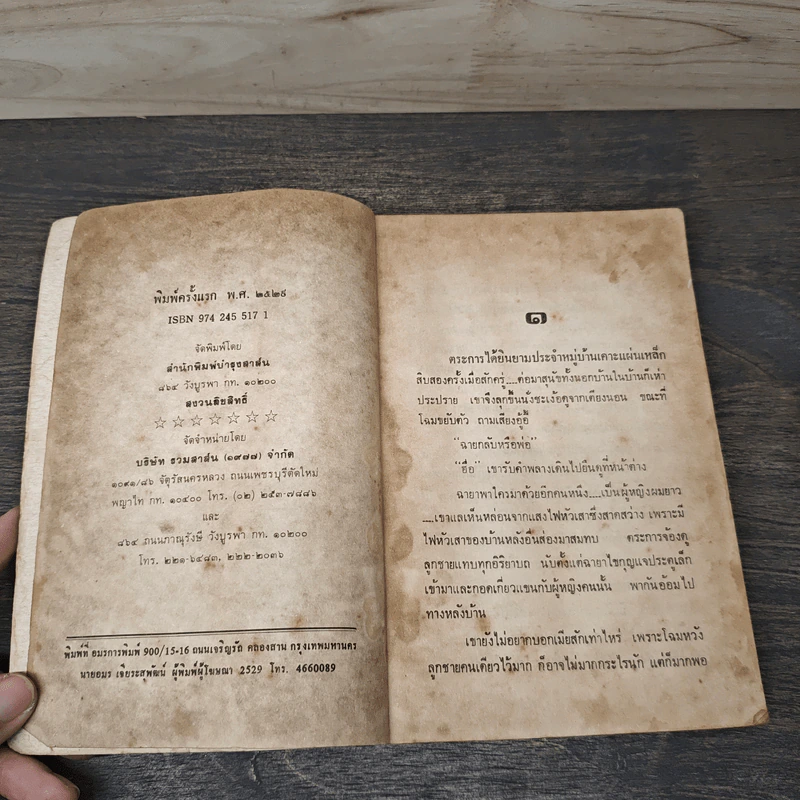 พิมพ์ครั้งแรก พ.ศ. ๒๕๒๙
ISBN 974 245 517 1
จัดพิมพ์โดย
สำนักพิมพ์บำรุงสาส์น
๘๖๔ วังบูรพา กท. ๑๐๒๐๐
สงวนลิขสิทธิ์
☆ ☆ ☆ ☆ ☆ ☆ ☆
จัดจำหน่ายโดย
บริษัท รวมสาส์น (๑๙๗๗) จำกัด
๑๐๙๑/๘๖ จัตุรัสนครหลวง ถนนเพชรบุรีตัดใหม่
พญาไท กท. ๑๐๔๐๐ โทร. (๐๒) ๒๕๓-๗๘๘๖
และ
๘๖๔ ถนนภาณุรังษี วังบูรพา กท. ๑๐๒๐๐
โทร. ๒๒๑-๖๔๘๓, ๒๒๒-๒๐๓๖
พิมพ์ที่ อมรการพิมพ์ 900/15-16 ถนนเจริญรัถ คลองสาน กรุงเทพมหานคร
นายอมร เจียระสุพัฒน์ ผู้พิมพ์ผู้โฆษณา 2529 โทร. 4660089
๑
ตระการได้ยินยามประจำหมู่บ้านเคาะแผ่นเหล็ก
สิบสองครั้งเมื่อสักครู่....ต่อมาสุนัขทั้งนอกบ้านในบ้านก็เห่า
ประปราย เขาจึงลุกขึ้นนั่งชะเง้อดูจากเตียงนอน ขณะที่
โฉมขยับตัว ถามเสียงอู้อี้
“ฉายกลับหรือพ่อ”
“ฮื่อ” เขารับคำพลางเดินไปยืนดูที่หน้าต่าง
ฉายาพาใครมาด้วยอีกคนหนึ่ง....เป็นผู้หญิงผมยาว
....เขาแลเห็นหล่อนจากแสงไฟหัวเสาซึ่งสาดสว่าง เพราะมี
ไฟหัวเสาของบ้านหลังอื่นส่องมาสมทบ ตระการจ้องดู
ลูกชายแทบทุกอิริยาบถ นับตั้งแต่ฉายาไขกุญแจประตูเล็ก
เข้ามาและกอดเกี่ยวแขนกับผู้หญิงคนนั้น พากันอ้อมไป
ทางหลังบ้าน
เขายังไม่อยากบอกเมียสักเท่าไหร่ เพราะโฉมหวัง
ลูกชายคนเดียวไว้มาก ก็อาจไม่มากกระไรนัก แต่ก็มากพอ